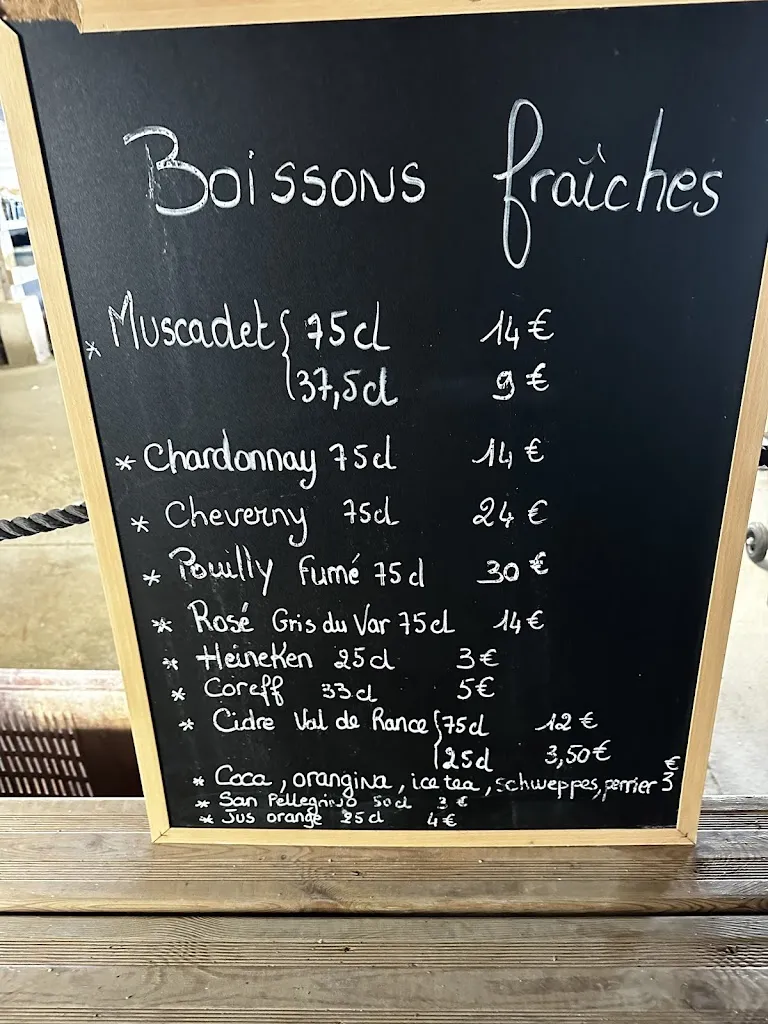 Boissons fraîches
* Muscadet { 75cl 14€
37,5cl 9€
* Chardonnay 75cl 14€
* Cheverny 75cl 24€
* Pouilly Fumé 75cl 30€
* Rosé Gris du Var 75cl 14€
* Heineken 25cl 3€
* Coreff 33cl 5€
* Cidre Val de Rance { 75cl 12€
25cl 3,50€
* Coca, orangina, ice tea, schweppes, perrier 3€
* San Pellegrino 50cl 3€
* Jus orange 25cl 4€